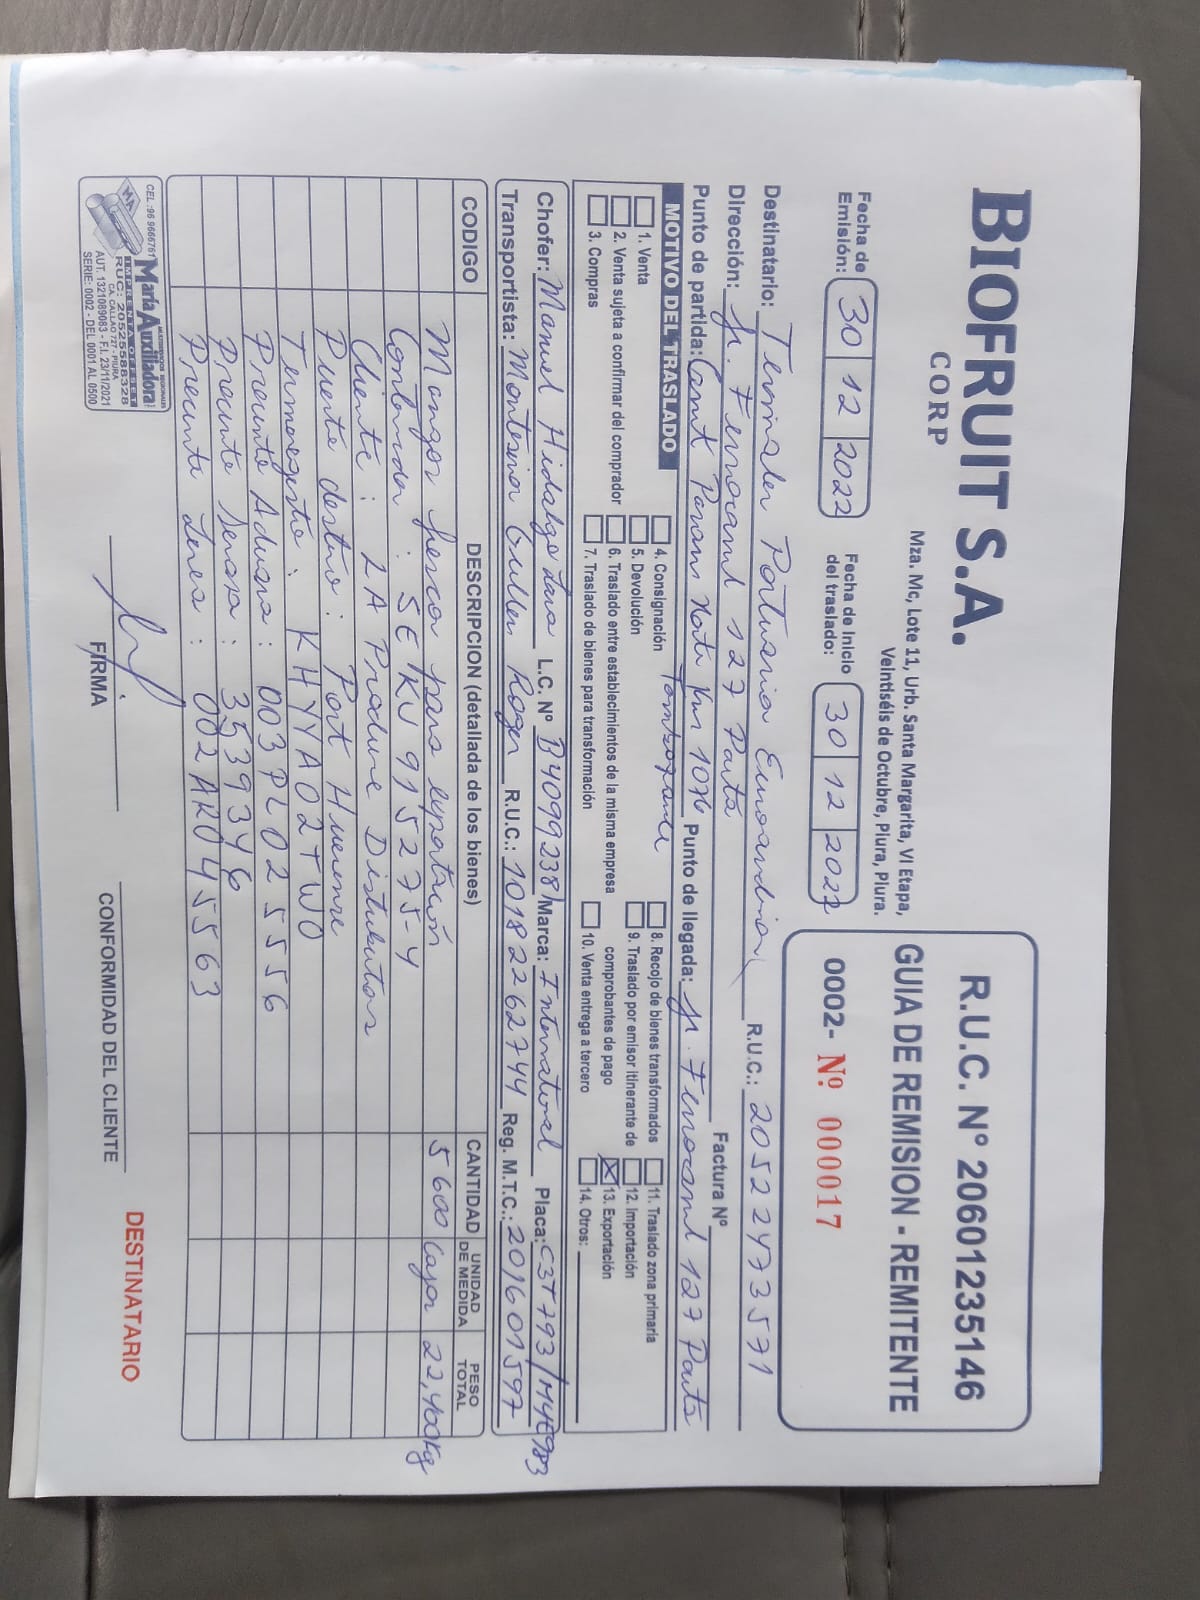 BIOFRUIT S.A.
CORP
Mza. Mc, Lote 11, Urb. Santa Margarita, VI Etapa,
Veintiséis de Octubre, Piura, Piura.
R.U.C. N° 20601235146
GUIA DE REMISION - REMITENTE
0002- Nº 000017
Fecha de Emisión: 30 12 2022 Fecha de Inicio del traslado: 30 12 2022
Destinatario: Terminales Portuarios Euroandinos R.U.C.: 20522473571
Dirección: Jr. Ferrocarril 127 Paita Factura Nº
Punto de partida: Carret Panam Norte Km 1076 Tambogrande Punto de llegada: Jr. Ferrocarril 127 Paita
MOTIVO DEL TRASLADO
1. Venta
2. Venta sujeta a confirmar del comprador
3. Compras
4. Consignación
5. Devolución
6. Traslado entre establecimientos de la misma empresa
7. Traslado de bienes para transformación
8. Recojo de bienes transformados
9. Traslado por emisor itinerante de comprobantes de pago
10. Venta entrega a tercero
11. Traslado zona primaria
12. Importación
X 13. Exportación
14. Otros:
Chofer: Manuel Hidalgo Lara L.C. Nº B4099238 Marca: International Placa: C3T793/M4E983
Transportista: Montesin Guller Roger R.U.C.: 10182262744 Reg. M.T.C.: 201601597
CODIGO DESCRIPCION (detallada de los bienes) CANTIDAD UNIDAD DE MEDIDA PESO TOTAL
Mangos fresco para exportación 5600 Cajas 22,400Kg
Contenedor : SEKU 915275-4
Cliente : LA Produce Distributors
Puerto destino : Port Hueneme
Termoregistro : KHYYA02TW0
Precinto Aduana : 003PL025556
Precinto Senasa : 3539346
Precinto Linea : 002AR045563
CEL.:96 9666761
María Auxiliadora
IMPRENTA OFFSET
RUC: 20525588328
CA. CALLAO 727 - PIURA
AUT. 1321089083 - F.I. 23/11/2021
SERIE: 0002 - DEL 0001 AL 0500
FIRMA
CONFORMIDAD DEL CLIENTE
DESTINATARIO